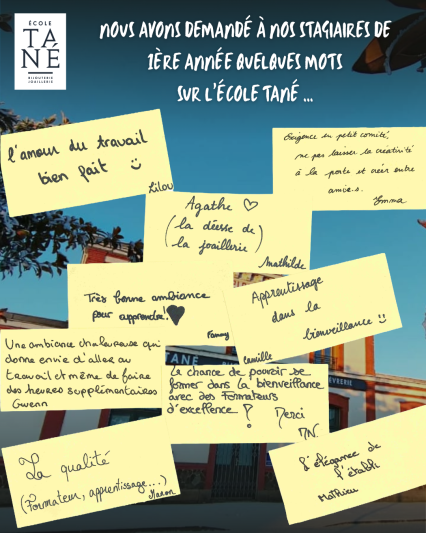 ÉCOLE
TA
NÉ
BIJOUTERIE
JOAILLERIE
NOUS AVONS DEMANDÉ À NOS STAGIAIRES DE
1ÈRE ANNÉE QUELQUES MOTS
SUR L'ÉCOLE TANÉ ...
l'amour du travail
bien fait
Lilou
Exigence en petit comité,
ne pas laisser la créativité
à la porte et créer entre
amie.s.
Emma
Agathe
(la déesse de
la joaillerie)
Mathilde
Très bonne ambiance
pour apprendre!
Fanny
Apprentissage
dans la
bienveillance
Camille
Une ambiance chaleureuse qui
donne envie d'aller au
travail et même de faire
des heures supplémentaires
Gwenn
TANÉ
La chance de pouvoir se
former dans la bienveillance
avec des Formateurs
d'excellence !
Merci
La qualité
(Formateur, apprentissage....)
Manon
l'élégance de
l'établi
Mathieu